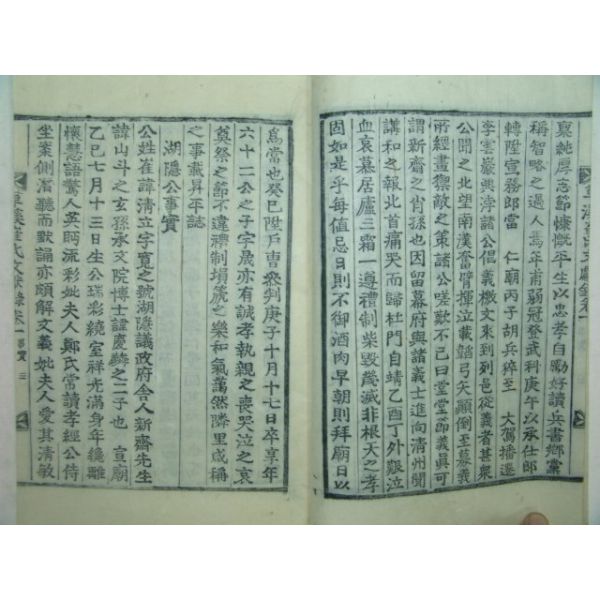 稟純厚志節慷慨平生以忠孝自勵好讀兵書鄉黨
稱智略之過人焉年甫弱冠登武科庚午以承仕郎
轉陞宣務郎當 仁廟丙子胡兵猝至 大駕播遷
李雲巖興浡諸公倡義檄文來到列邑從義者甚衆
公聞之北望南漢奮臂揮泣載韜弓矢顚倒至幕義
所經畫禦敵之策諸公嗟歎不已曰堂堂節義眞可
謂新齋之肖孫也因留幕府與諸義士進向清州聞
講和之報北首痛哭而歸杜門自靖乙酉丁外艱泣
血哀慕居廬三霜一遵禮制柴毁幾滅非根天之孝
固如是乎每值忌日則不御酒肉早朝則拜廟日以
爲常也癸巳陞戶曹參判庚子十月十七日卒享年
六十二公之子字展亦有誠孝執親之喪哭泣之哀
奠祭之節不違禮制塤篪之樂和氣萬然隣里咸稱
之事載昇平誌
湖隱公事實
公姓崔諱清立字寬之號湖隱議政府舍人新齋先生
諱山斗之玄孫承文院博士諱慶麟之二子也 宣廟
乙巳七月十三日生公瑞彩繞室祥光滿身年纔離
懷慧語驚人英眄流彩妣夫人鄭氏常讀孝經公侍
坐案側潛聽而默誦亦頗解文義妣夫人愛其清敏
崔氏文獻錄卷一 事實 三